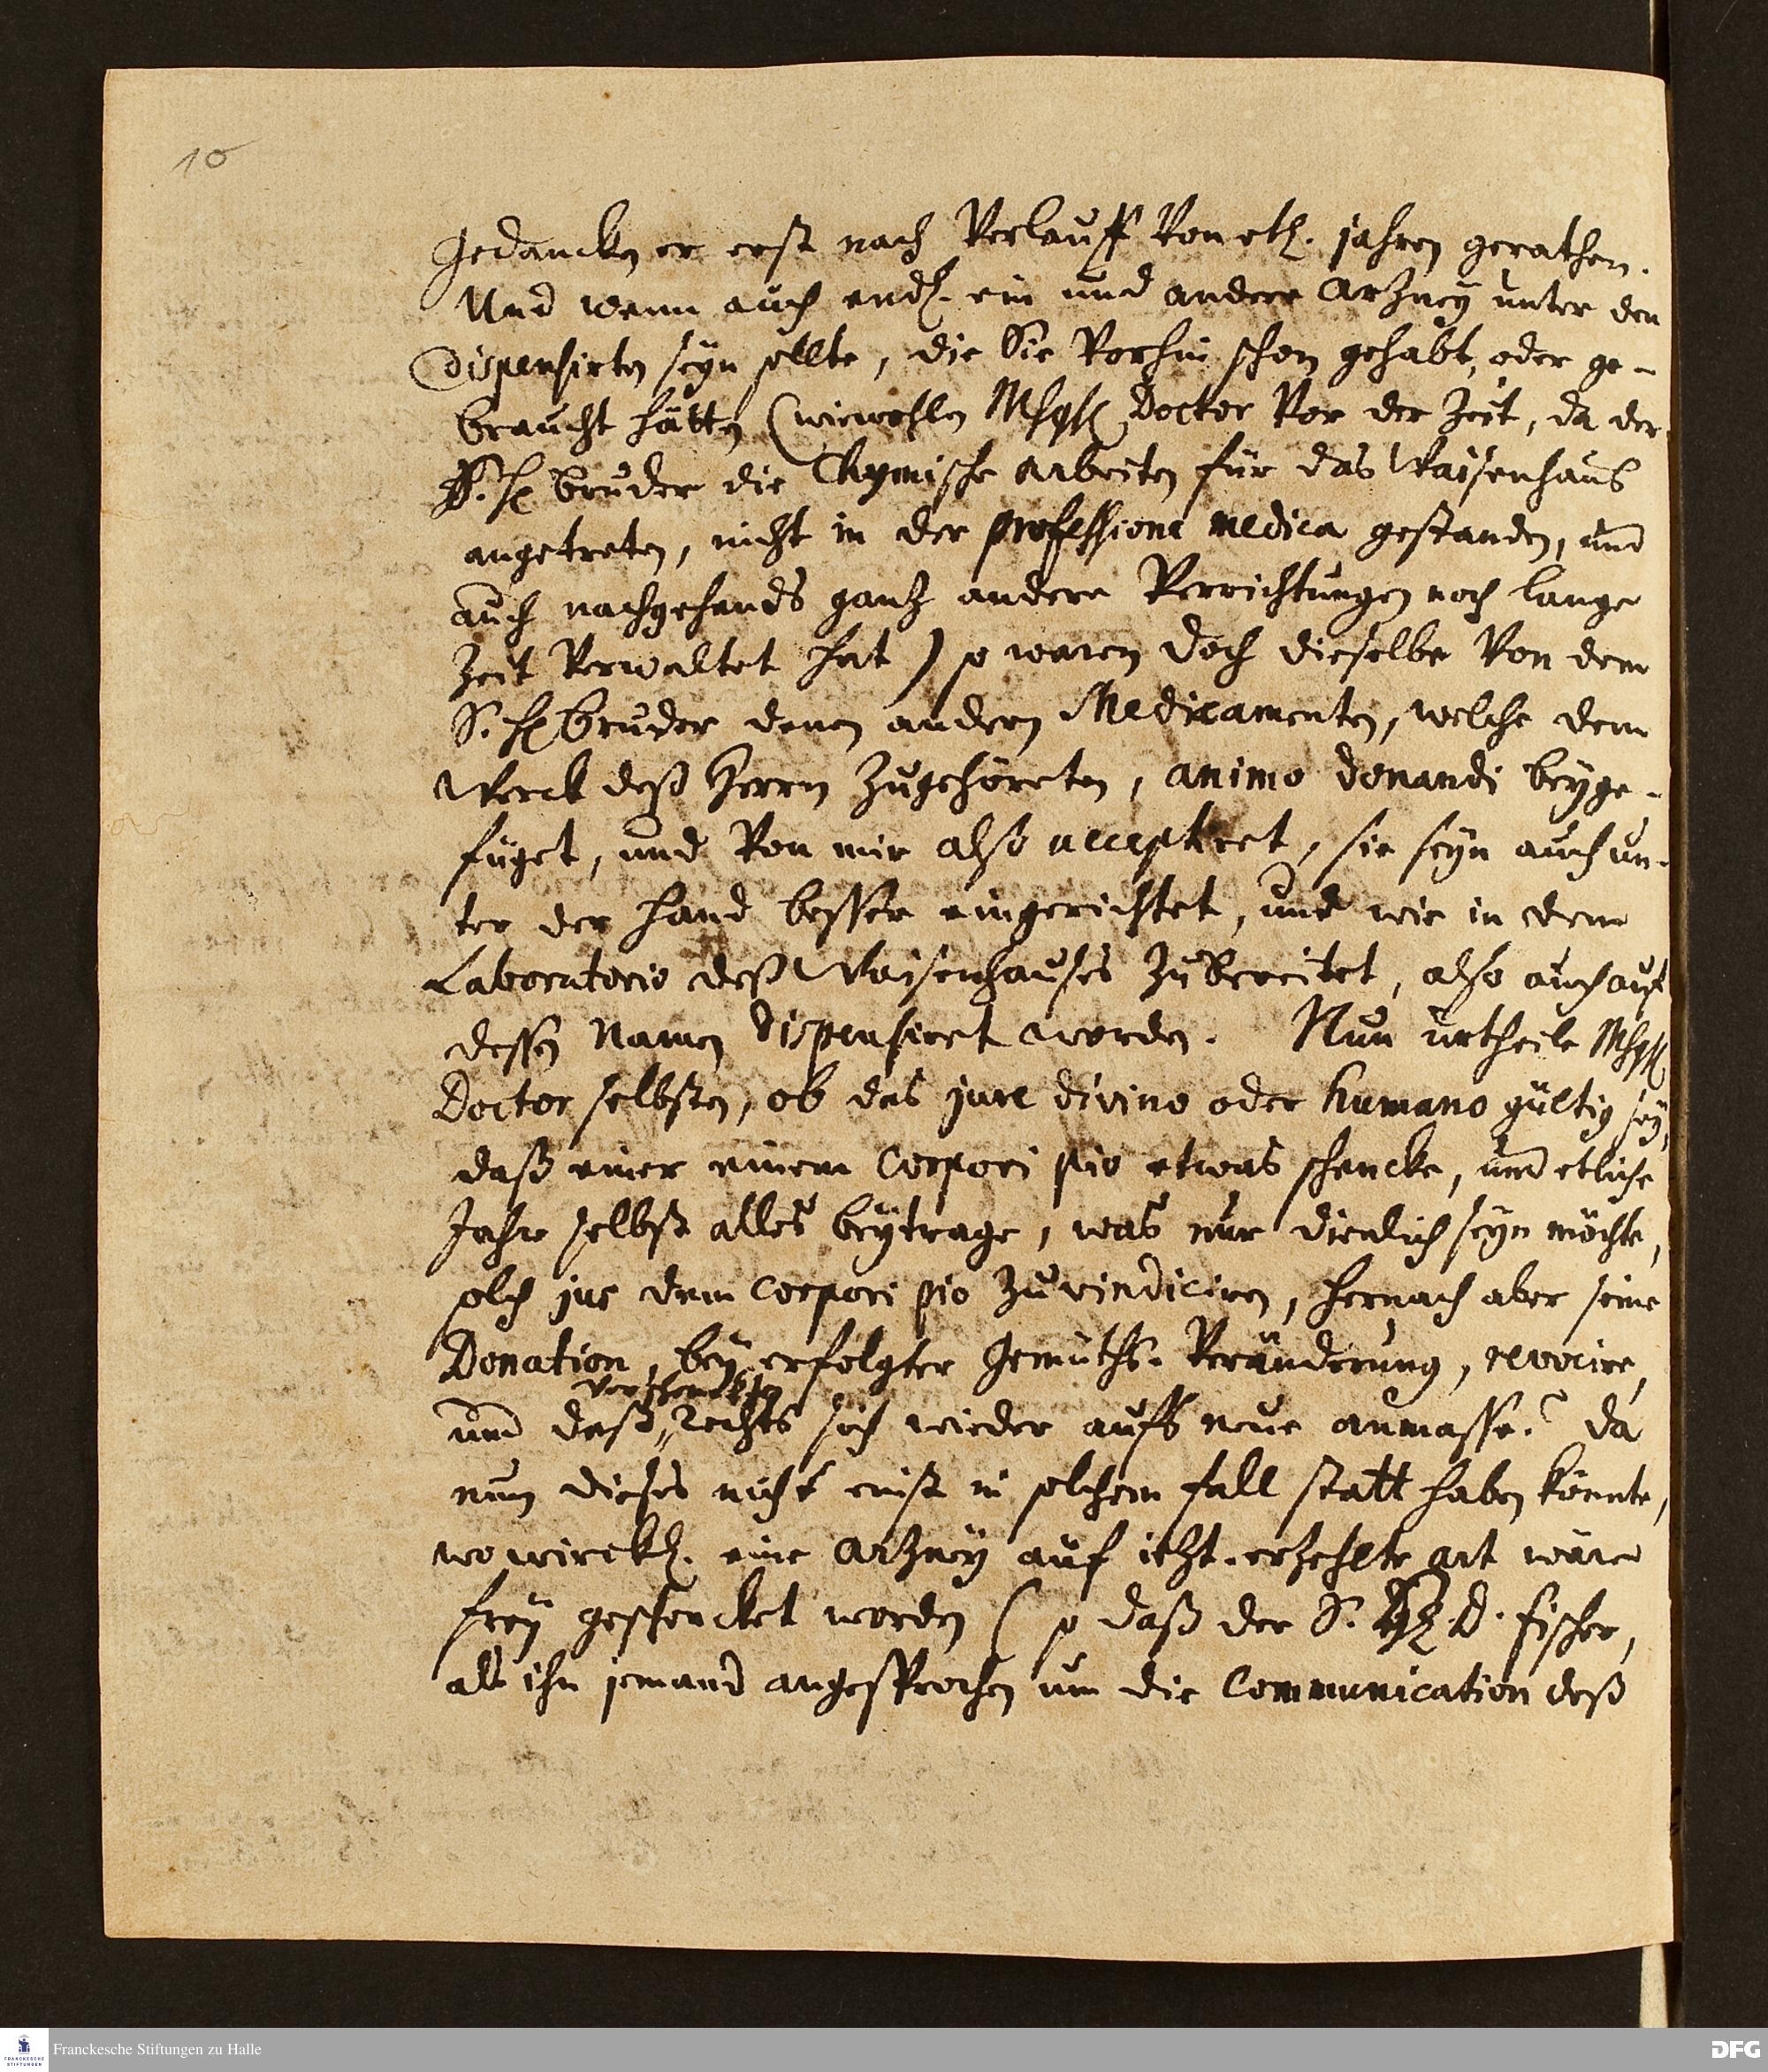 10
gedancken er erst nach Verlauff von etl. jahren gerathen.
Und wenn auch endl. ein und andere Artzney unter den
dispensirten seyn sollte, die Sie vorhin schon gehabt, oder ge-
braucht hätten (wiewohlen MhgH Doctor vor der Zeit, da der
H. bruder die Chymische arbeiten für das Waisenhauß
angetreten, nicht in der professione medica gestanden, und
auch nachgehends gantz andere Verrichtungen noch lange
Zeit verwaltet hat) so waren doch dieselbe von dem
S. H. bruder denen andern Medicamenten, welche dem
Werck deß Herrn zugehöreten, animo donandi beyge-
füget, und von mir also acceptiret, sie seyn auch un-
ter der hand besser eingerichtet, und wie in dem
Laboratorio deß Waisenhauses zubereitet, also auch auf
dessen Namen dispensiret worden. Nun urtheile MhgH
Doctor selbsten, ob das jure divino oder humano gültig sey,
daß einer einem Corpori pio etwas schencke, und etliche
Jahre selbst alles beytrage, was nur dienlich seyn möchte,
solch jus dem Corpori pio zu vindiciren, hernach aber seine
Donation, bey erfolgter Gemüths-Veränderung, revocire,
verschenckten
und deß Rechts sich wieder aufs neue anmasse? Da
nun dieses nicht einst in solchem fall statt haben könnte,
wo wirckl. eine Artzney auf itzt-erzehlte art wäre
frey geschencket worden (so daß der S. D. Fischer,
als ihn jemand angesprochen um die Communication deß
Franckesche Stiftungen zu Halle
FRANCKESCHE STIFTUNGEN
DFG